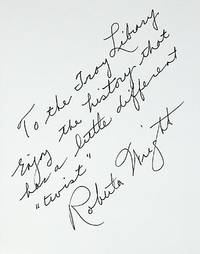 To the Troy Library
Enjoy the history that
has a little different
"twist"
Roberta Wright